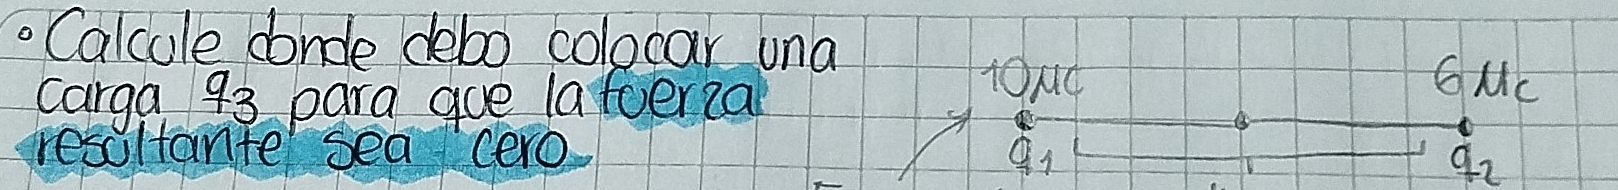 • Calcule donde debo colocar una
carga q3 para que la fuerza
resultante sea cero.
10 μc
6 μc
q1
q2